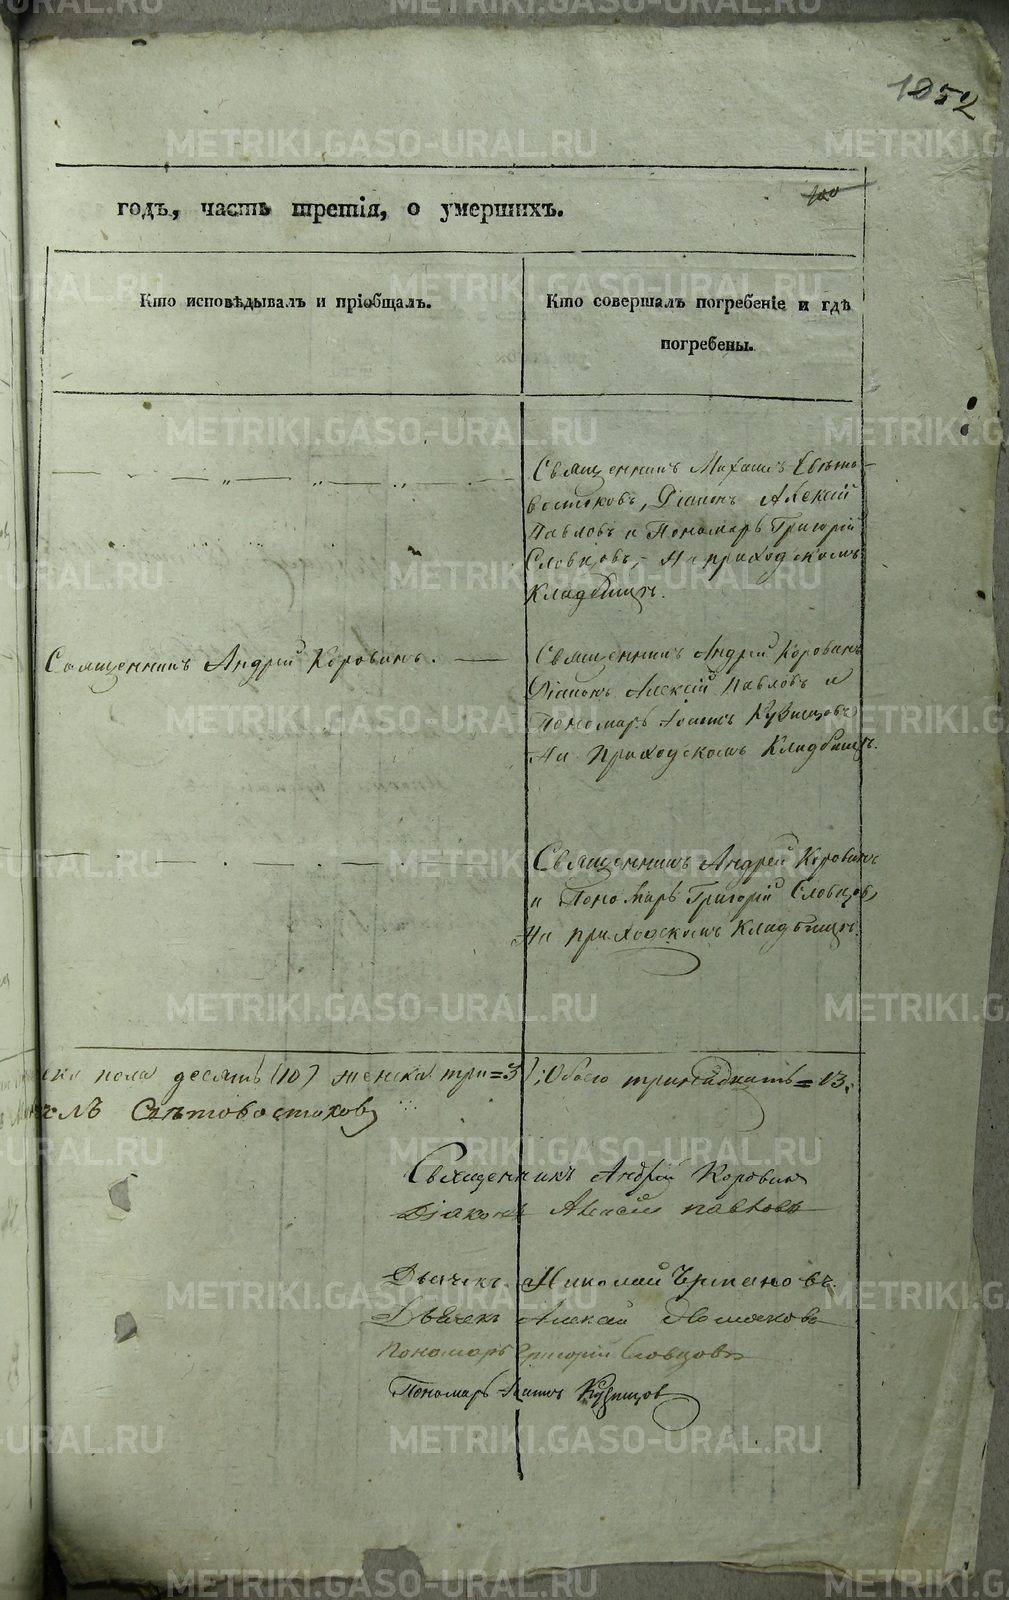 1052
100
годъ, часть третія, о умершихъ.
Кто исповѣдывалъ и пріобщалъ.
Кто совершалъ погребеніе и гдѣ
погребены.
Священникъ Михаилъ Свѣто-
востоковъ, Діаконъ Алексѣй
Павловъ и Пономарь Григорій
Словцовъ, На приходскомъ
Кладбищѣ.
Священникъ Андрей Коровинъ.
Священникъ Андрей Коровинъ
Діаконъ Алексѣй Павловъ и
Пономарь Іоаннъ Кузнецовъ
На приходскомъ Кладбищѣ.
Священникъ Андрей Коровинъ
и Пономарь Григорій Словцовъ,
На приходскомъ Кладбищѣ.
пола десять (10) женска три=3; Обоего тринадцать=13.
Свѣтовостоковъ
Священникъ Андрей Коровинъ
Діаконъ Алексѣй Павловъ
Дьячекъ Николай
Дьячекъ Алексѣй
Пономарь Григорій Словцовъ
Пономарь Іоаннъ Кузнецовъ
METRIKI.GASO-URAL.RU